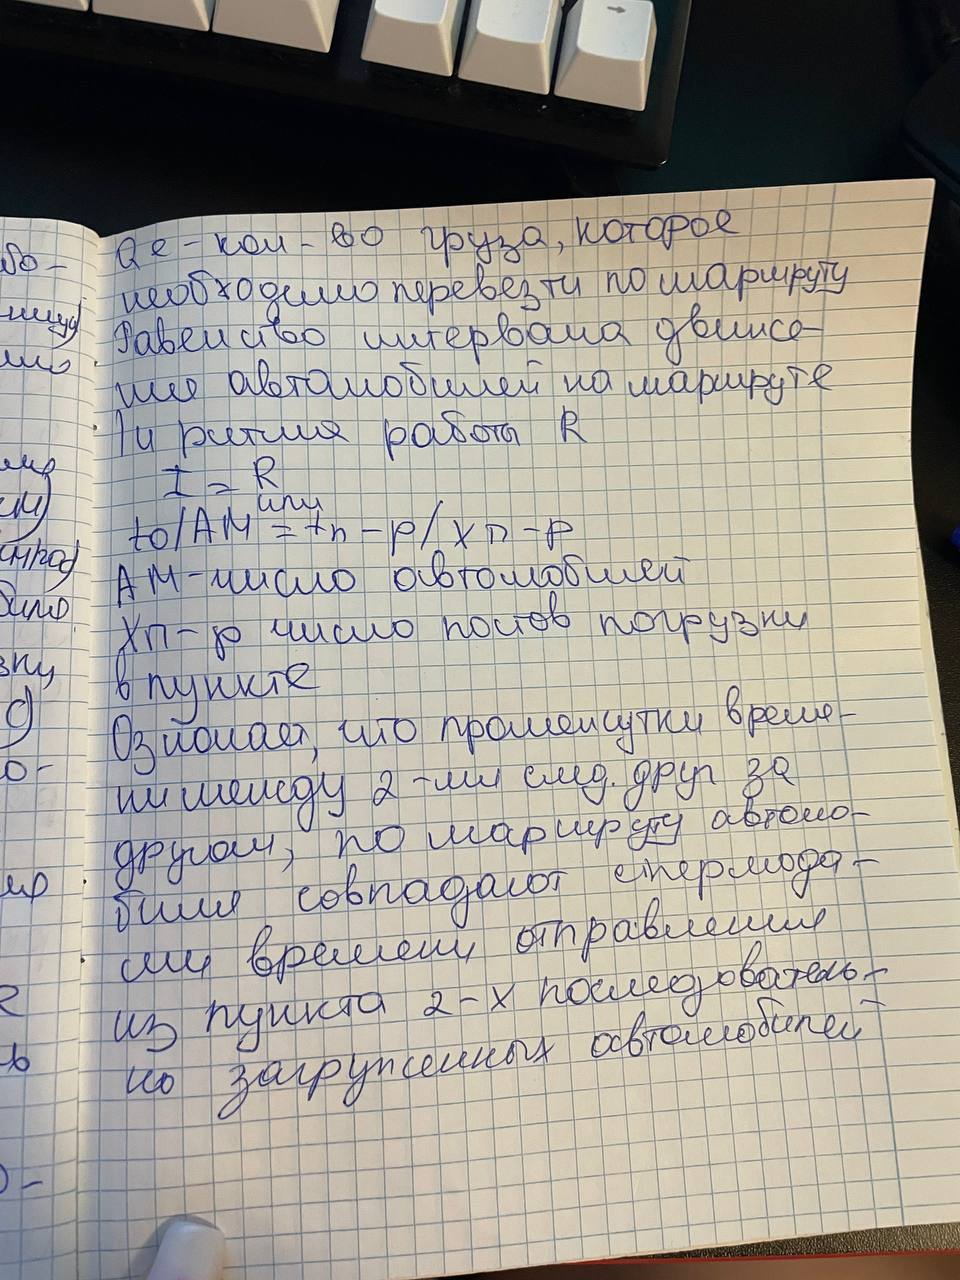 Qe - кол-во груза, которое
необходимо перевезти по маршруту
Равенство интервала движе-
ния автомобилей на маршруте
и ритма работы R
I = R
или
to/AM = tп-р/Xп-р
AM - число автомобилей
Xп-р число постов погрузки
в пункте
Означает, что промежутки време-
ни между 2-мя след. друг за
другом, по маршруту автомо-
били совпадают с
времени отправления
из пункта 2-х последователь-
но загруженных автомобилей